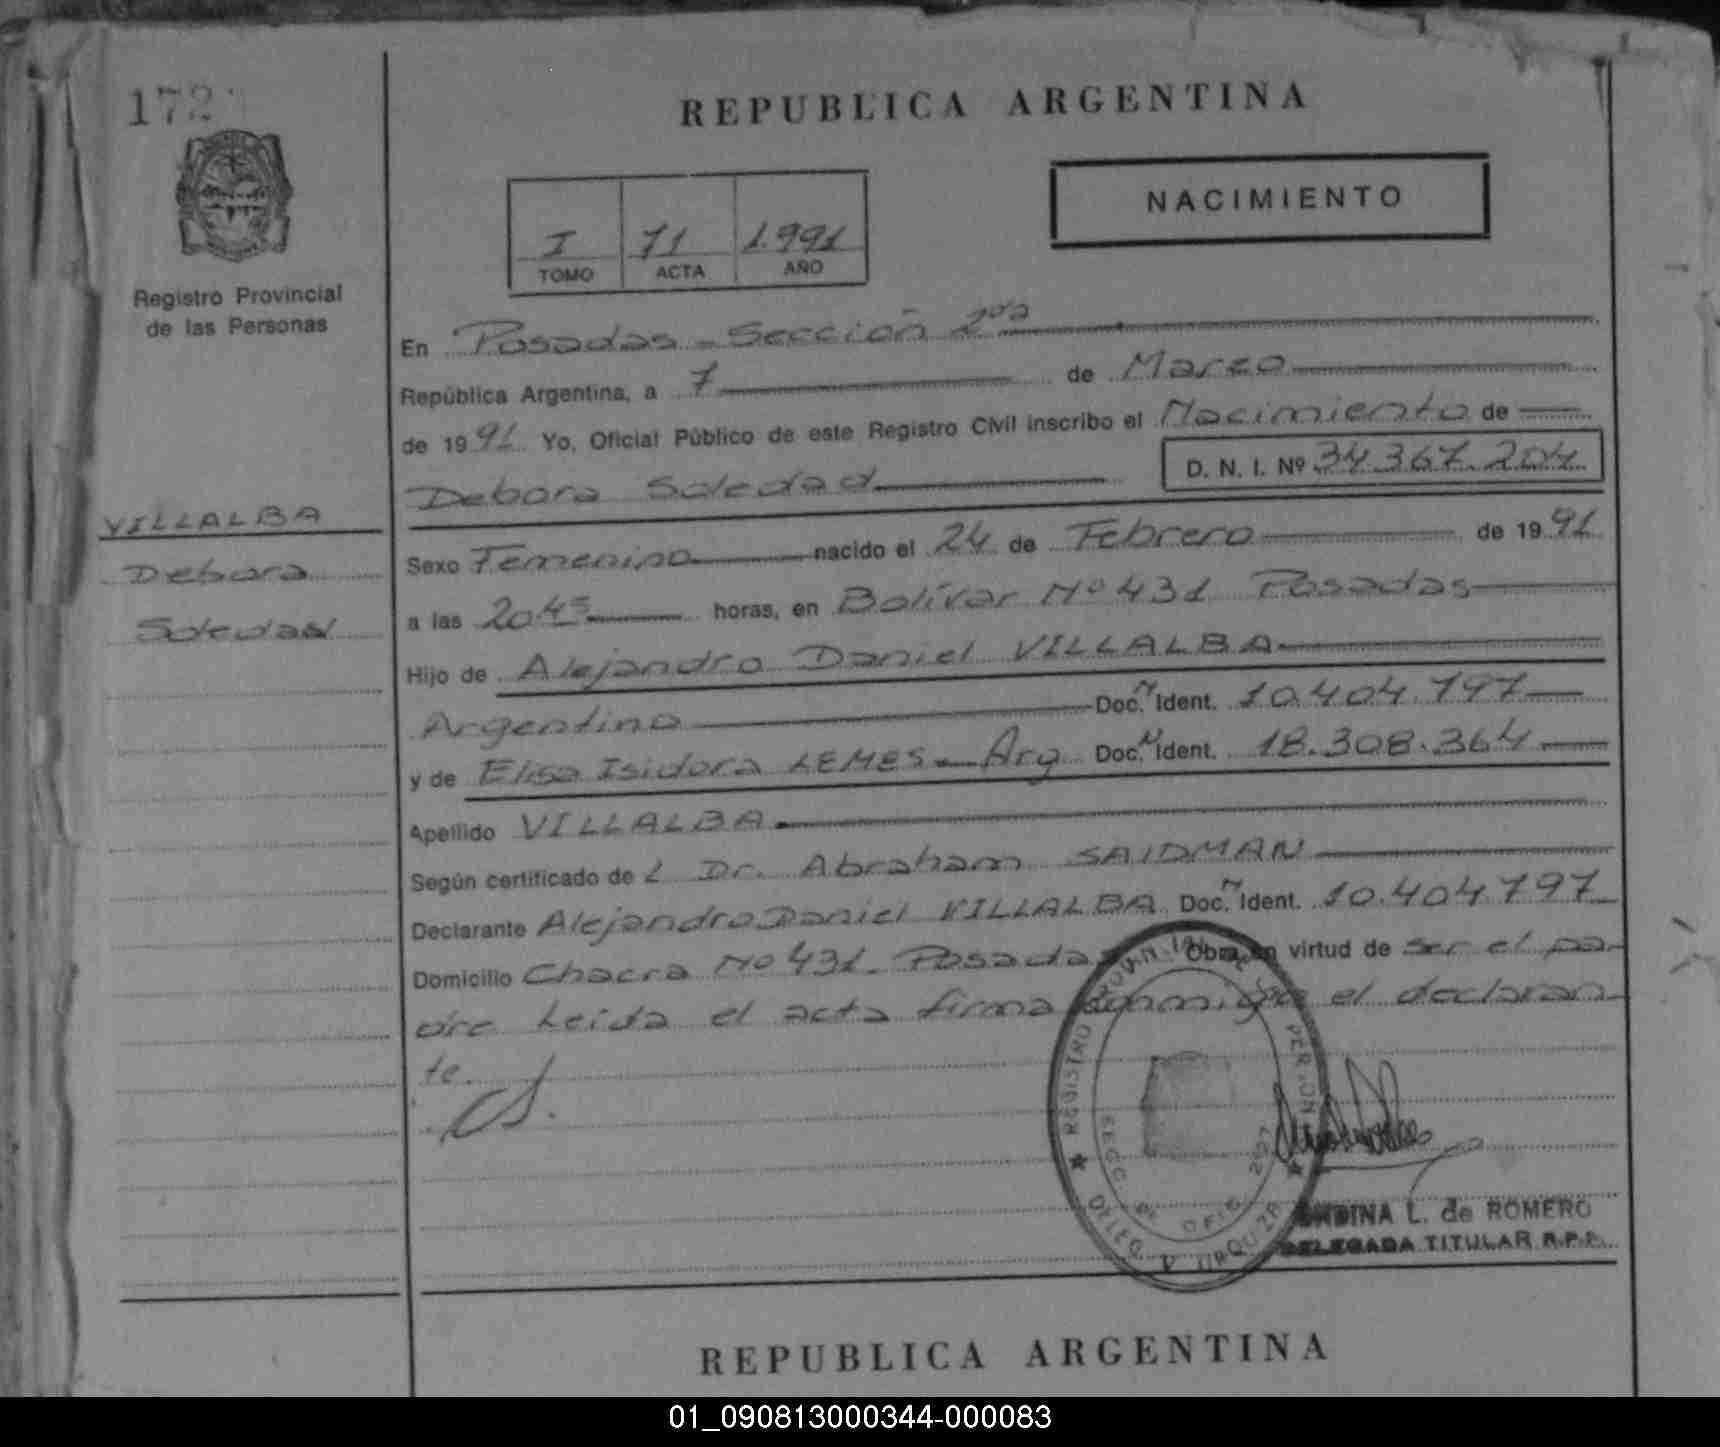 172
REPUBLICA ARGENTINA
NACIMIENTO
I 71 1.991
TOMO ACTA AÑO
Registro Provincial
de las Personas
En Posadas - Sección 2da
República Argentina, a 7 de Marzo
de 1991 Yo, Oficial Público de este Registro Civil inscribo el Nacimiento de
Debora Soledad D. N. I. Nº 34.367.204
VILLALBA
Debora
Soledad
Sexo Femenino nacido el 24 de Febrero de 1991
a las 20 45 horas, en Bolívar Nº 431 Posadas
Hijo de Alejandro Daniel VILLALBA
Argentino Doc. N Ident. 10.404.797
y de Elisa Isidora LEMES - Arg Doc. N Ident. 18.308.364
Apellido VILLALBA
Según certificado de L Dr. Abraham SAIDMAN
Declarante Alejandro Daniel VILLALBA Doc. N Ident. 10.404.797
Domicilio Chacra Nº 431 - Posadas Obra en virtud de ser el pa-
dre Leida el acta firma conmigo el declaran-
te.
REGISTRO PROVINCIAL DE LAS PERSONAS
DELEG.
URQUIZA
SECC. OFIC.
L. de ROMERO
DELEGADA TITULAR R.P.P.
REPUBLICA ARGENTINA
01_090813000344-000083